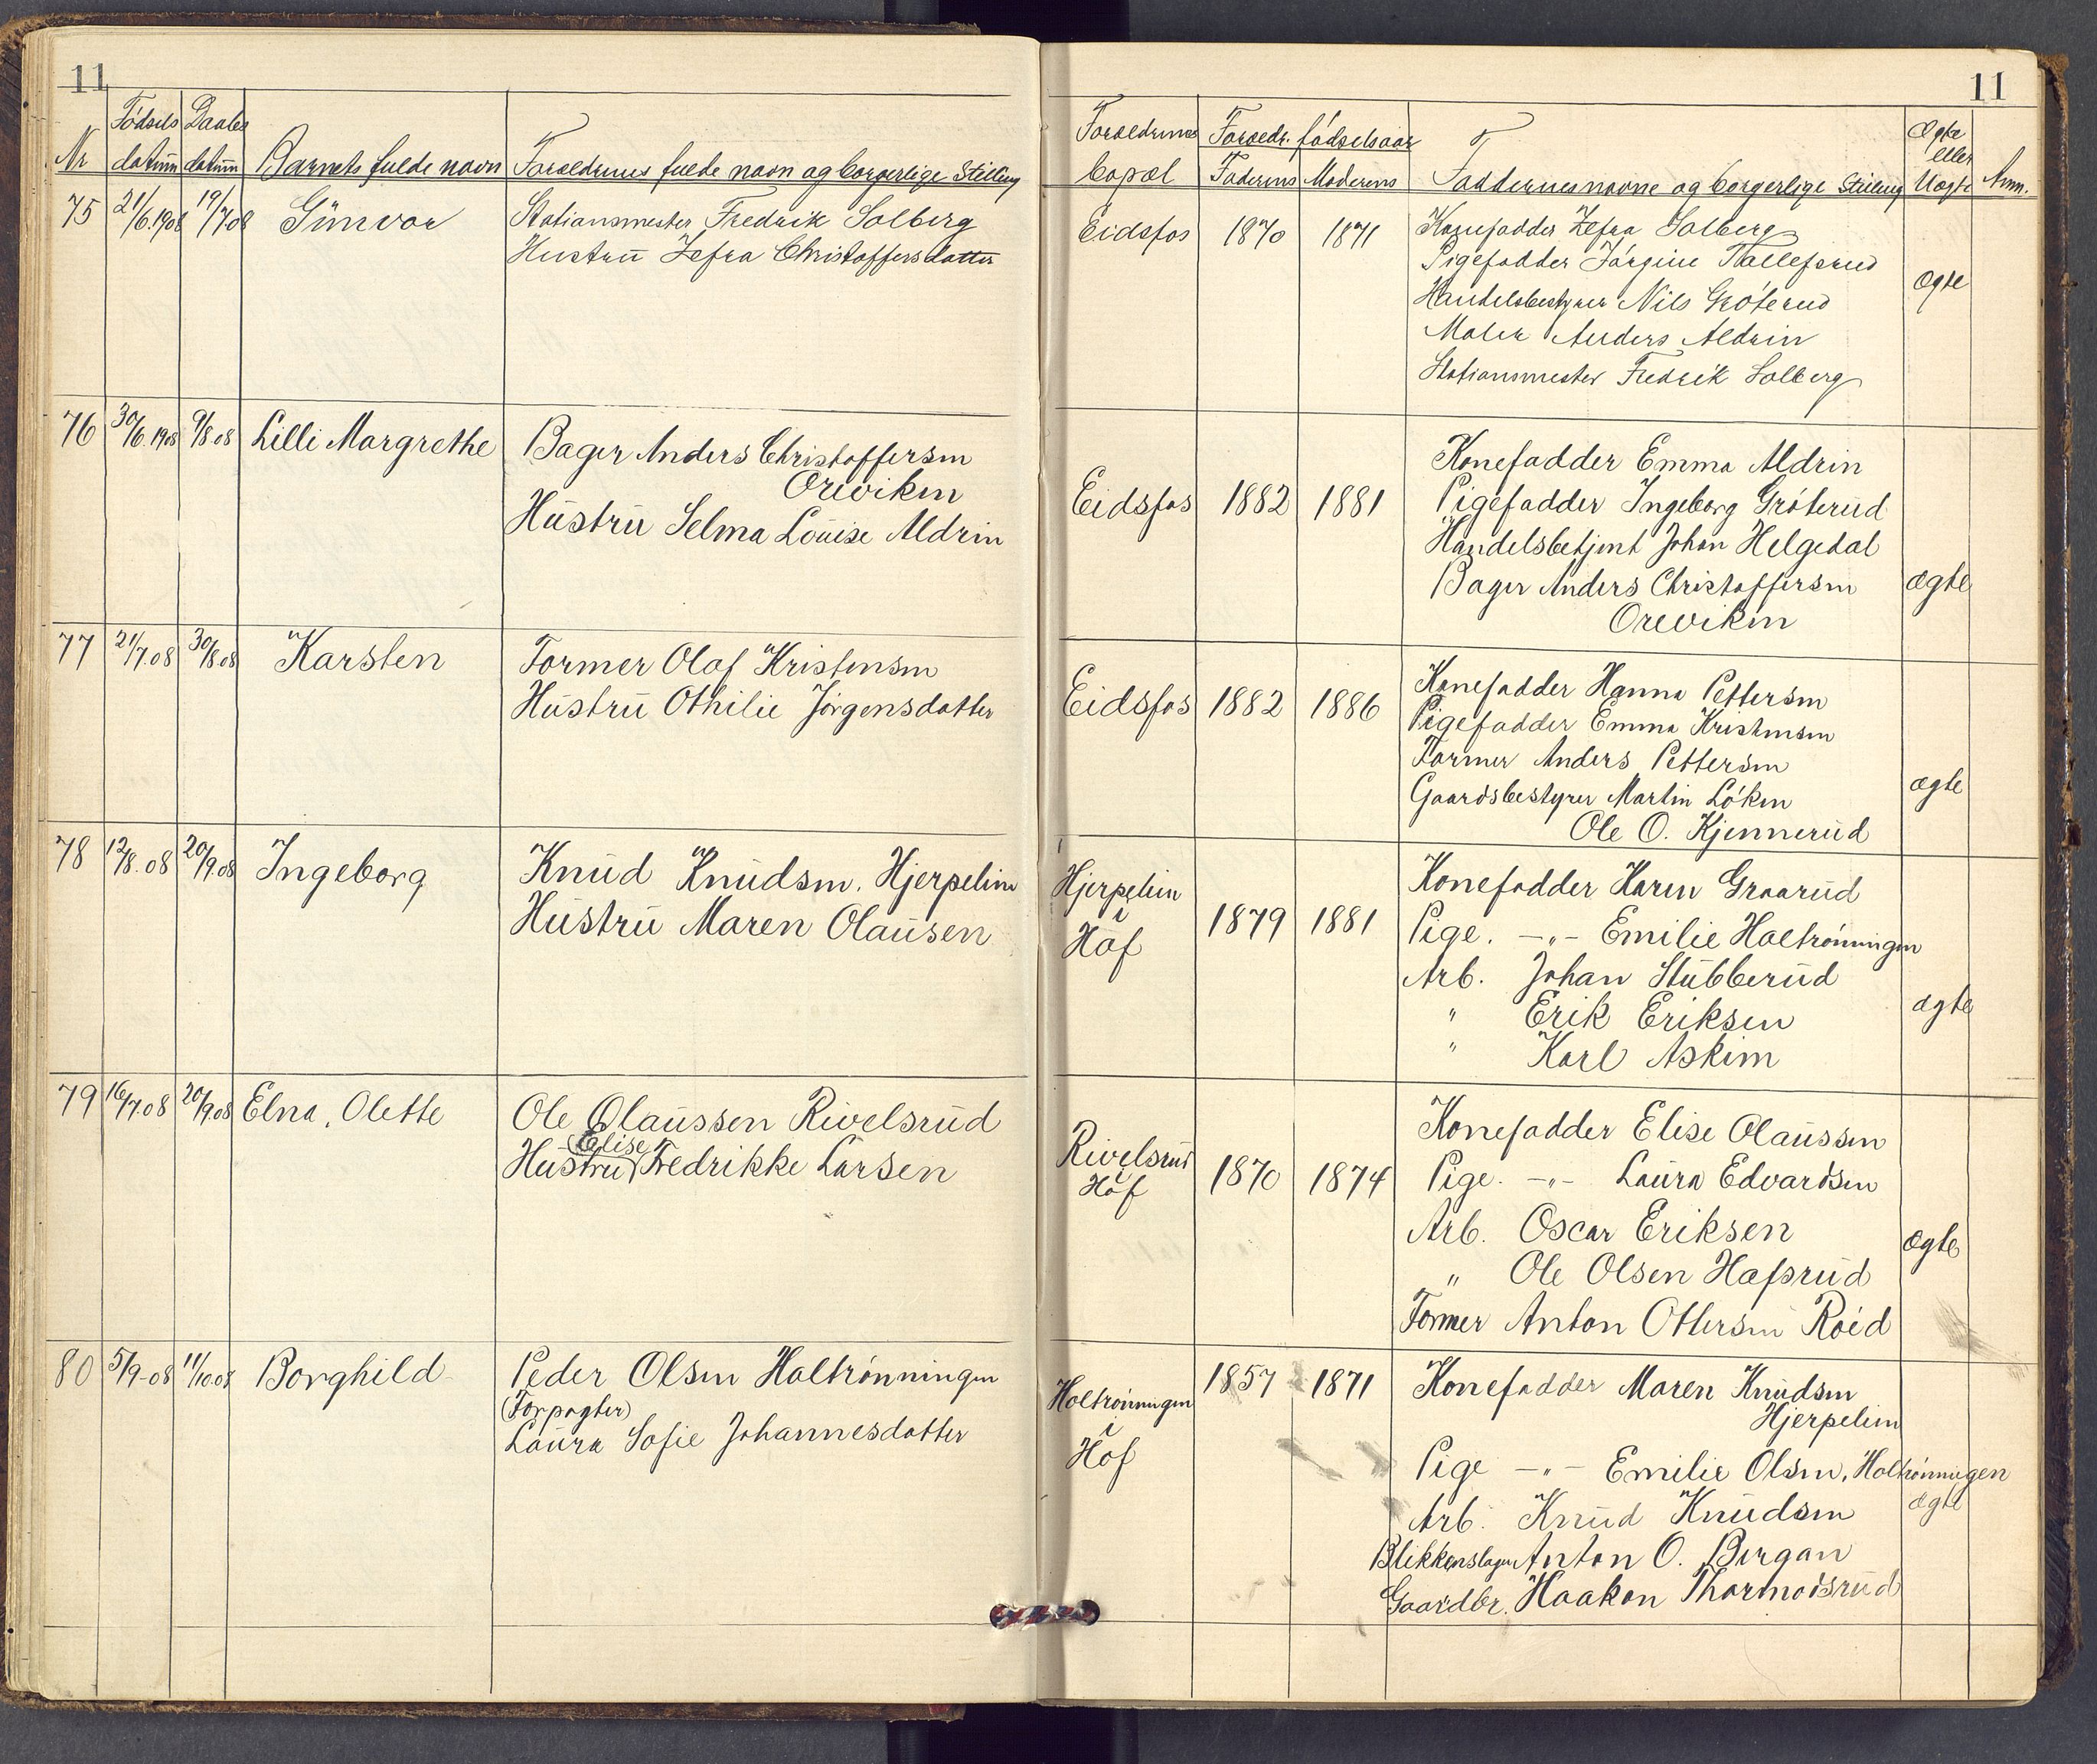 11
Nr
Fødsels datum
Daabs datum
Barnets fulde navn
Forældrenes fulde navn og borgerlige Stilling
75
21/6.1908
19/7 08
Gunvor
Stationsmester Fredrik Solberg
Hustru Zefra Christoffersdatter
76
30/6.1908
9/8 08
Lilli Margrethe
Bager Anders Christoffersen
Oreviken
Hustru Selma Louise Aldrin
77
21/7.08
30/8.08
Karsten
Former Olaf Kristensen
Hustru Othilie Jørgensdatter
78
12/8.08
20/9.08
Ingeborg
Knud Knudsen. Hjerpelien
Hustru Maren Olausen
79
16/7.08
20/9.08
Elna, Olette
Ole Olaussen Rivelsrud
(Elise)
Hustru Fredrikke Larsen
80
5/9-08
11/10.08
Borghild
Peder Olsen Holtrønningen
(Forpagter)
Laura Sofie Johannesdatter
11
Forældrenes
bopæl
Forældr. fødselsaar
Faderens
Moderens
Faddernes navne og borgerlige Stilling
Ægte
eller
Uægte
Anm.
Eidsfos
1870
1871
Konefadder Zefra Solberg
Pigefadder Jørgine Tallefsrud
Handelsbestyrer Nils Grøterud
Maler Anders Aldrin
Stationsmester Fredrik Solberg
Ægte
Eidsfos
1882
1881
Konefadder Emma Aldrin
Pigefadder Ingeborg Grøterud
Handelsbetjent Johan Helgedal
Bager Anders Christoffersen
Oreviken
ægte
Eidsfos
1882
1886
Konefadder Hanna Pettersen
Pigefadder Emma Kristensen
Former Anders Pettersen
Gaardsbestyrer Martin Løken
Ole O. Kjennerud
ægte
Hjerpelien
i
Hof
1879
1881
Konefadder Karen Graarud
Pige. -"- Emilie Holtrønningen
Arb. Johan Stubberud
" Erik Eriksen
" Karl Askim
ægte
Rivelsrud
i
Hof
1870
1874
Konefadder Elise Olaussen
Pige. -"- Laura Edvardsen
Arb. Oscar Eriksen
" Ole Olsen Hafsrud
Former Anton Ottersen Roed
ægte
Holtrønningen
i
Hof
1857
1871
Konefadder Maren Knudsen
Hjerpelien
Pige -"- Emilie Olsen, Holtrønningen
Arb. Knud Knudsen
Blikkenslager Anton O. Bergan
Gaardbr. Haakon Thormodsrud
ægte